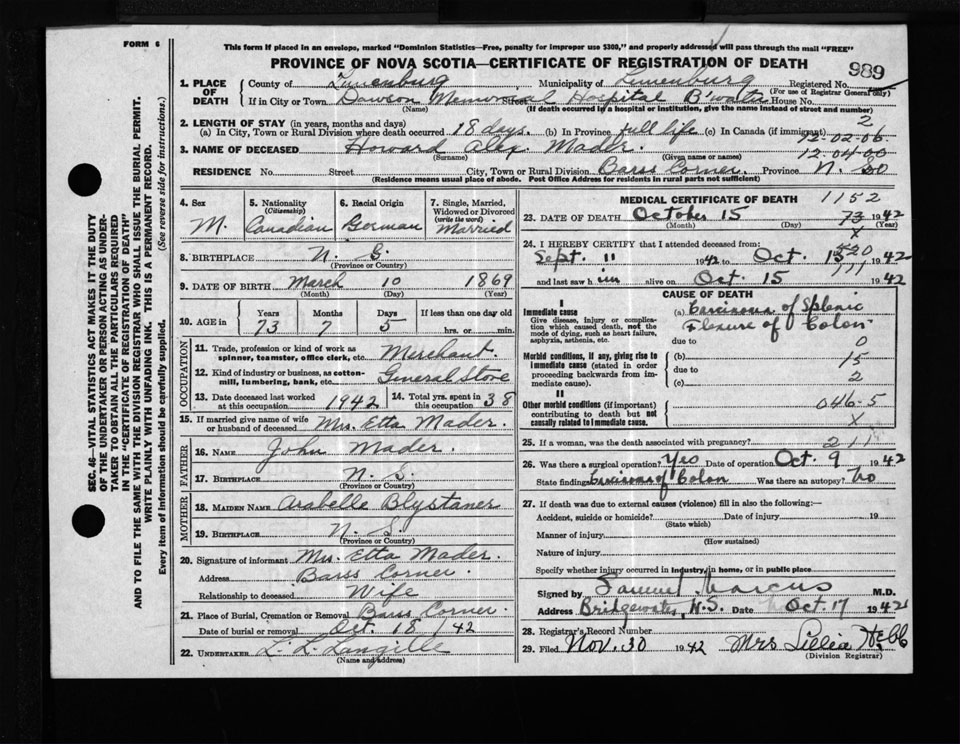 FORM 6
This form if placed in an envelope, marked "Dominion Statistics—Free, penalty for improper use $300," and properly addressed will pass through the mail "FREE"
PROVINCE OF NOVA SCOTIA—CERTIFICATE OF REGISTRATION OF DEATH
989
1. PLACE OF DEATH
County of Lunenburg Municipality of Lunenburg Registered No.
(For use of Registrar General only)
If in City or Town Dawson Memorial Hospital B'water House No.
(Name) (If death occurred in a hospital or institution, give the name instead of street and number)
2. LENGTH OF STAY (in years, months and days) 2
(a) In City, Town or Rural Division where death occurred 18 days. (b) In Province full life (c) In Canada (if immigrant) 12-02-06
3. NAME OF DECEASED Howard Alex. Mader. 12-04-00
(Surname) (Given name or names)
RESIDENCE No. Street City, Town or Rural Division Barss Corner. Province N. S.
(Residence means usual place of abode. Post Office Address for residents in rural parts not sufficient)
4. Sex M.
5. Nationality (Citizenship) Canadian
6. Racial Origin German
7. Single, Married, Widowed or Divorced (write the word) Married
8. BIRTHPLACE N. S.
(Province or Country)
9. DATE OF BIRTH March 10 1869
(Month) (Day) (Year)
10. AGE in Years Months Days If less than one day old
73 7 5 hrs. or min.
OCCUPATION
11. Trade, profession or kind of work as spinner, teamster, office clerk, etc. Merchant.
12. Kind of industry or business, as cotton-mill, lumbering, bank, etc. General Store
13. Date deceased last worked at this occupation 1942 14. Total yrs. spent in this occupation 38
15. If married give name of wife or husband of deceased Mrs. Etta Mader.
FATHER
16. NAME John Mader.
17. BIRTHPLACE N. S.
(Province or Country)
MOTHER
18. MAIDEN NAME Arabelle Blystaner
19. BIRTHPLACE N. S.
(Province or Country)
20. Signature of informant Mrs. Etta Mader.
Address Barss Corner.
Relationship to deceased Wife
21. Place of Burial, Cremation or Removal Barss Corner.
Date of burial or removal Oct. 18 1942
22. UNDERTAKER L. L. Langille
(Name and address)
MEDICAL CERTIFICATE OF DEATH 1152
23. DATE OF DEATH October 15 73 1942
(Month) (Day) (Year)
x
24. I HEREBY CERTIFY that I attended deceased from:
Sept. 11 1942 to Oct. 15 1942
and last saw him alive on Oct. 15 1942
CAUSE OF DEATH
I
Immediate cause
Give disease, injury, or complication which caused death, not the mode of dying, such as heart failure, asphyxia, asthenia, etc.
(a) Carcinoma of Splenic
Flexure of Colon.
due to 0
Morbid conditions, if any, giving rise to immediate cause (stated in order proceeding backwards from immediate cause).
(b) 15
due to 2
(c)
II
Other morbid conditions (if important) contributing to death but not causally related to immediate cause.
046-5
x
25. If a woman, was the death associated with pregnancy? 211
26. Was there a surgical operation? Yes Date of operation Oct. 9 1942
State findings Carcinoma of Colon Was there an autopsy? No
27. If death was due to external causes (violence) fill in also the following:—
Accident, suicide or homicide? Date of injury 19
(State which)
Manner of injury
(How sustained)
Nature of injury
Specify whether injury occurred in Industry, in home, or in public place
Signed by Samuel Marcus M.D.
Address Bridgewater, N.S. Date Oct. 17 1942
28. Registrar's Record Number
29. Filed Nov. 30 1942 Mrs Lillia Hebb
(Division Registrar)
SEC. 46—VITAL STATISTICS ACT MAKES IT THE DUTY
OF THE UNDERTAKER OR PERSON ACTING AS UNDER-
TAKER TO OBTAIN ALL THE PARTICULARS REQUIRED
IN THE "CERTIFICATE OF REGISTRATION OF DEATH"
AND TO FILE THE SAME WITH THE DIVISION REGISTRAR WHO SHALL ISSUE THE BURIAL PERMIT.
WRITE PLAINLY WITH UNFADING INK. THIS IS A PERMANENT RECORD.
Every item of information should be carefully supplied. (See reverse side for instructions.)